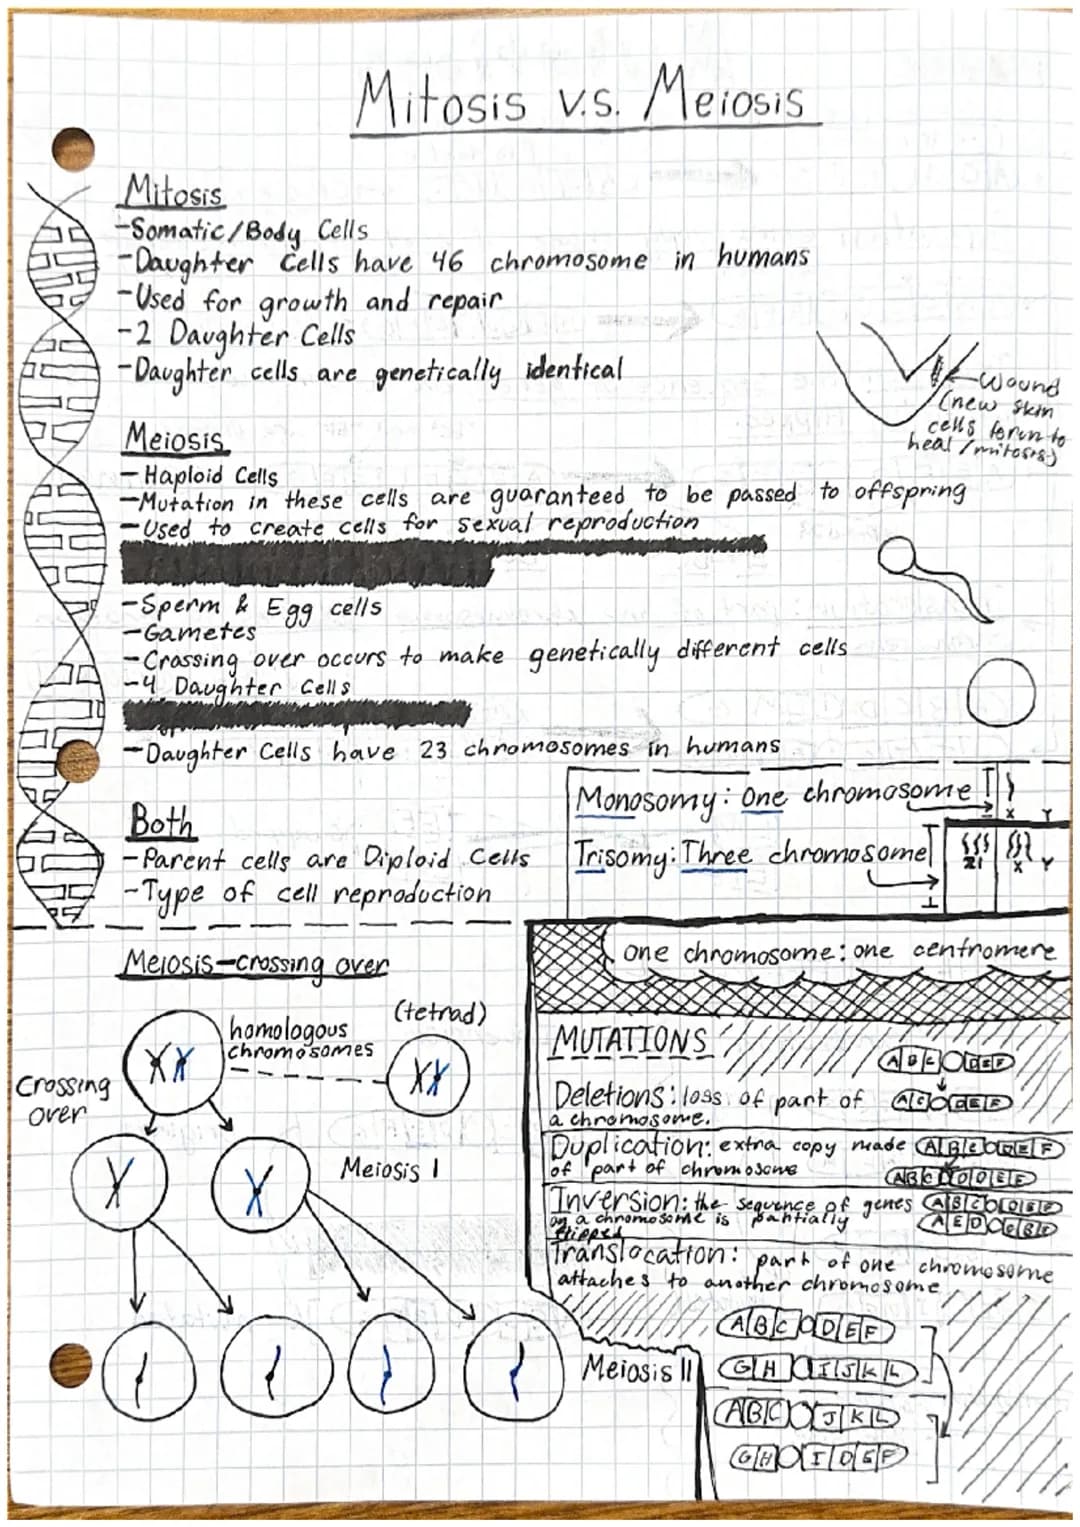 Mitosis v.s. Meiosis
Mitosis
-Somatic/Body Cells
-Daughter Cells have 46 chromosome in humans
-Used for growth and repair
-2 Daughter Cells
-Daughter cells are genetically identical
Wound
(new skin
cells form to
heal/mitosis)
Meiosis
-Haploid Cells
-Mutation in these cells are guaranteed to be passed to offspring
-Used to create cells for sexual reproduction
-Sperm & Egg cells
-Gametes
-Crossing over occurs to make genetically different cells
-4 Daughter Cells
-Daughter Cells have 23 chromosomes in humans
Both
-Parent cells are Diploid Cells
-Type of cell reproduction
Monosomy: One chromosome
X Y
Trisomy: Three chromosome
21 X Y
one chromosome: one centromere
Meiosis-crossing over
homologous
chromosomes
(tetrad)
Crossing
over
Meiosis I
Meiosis II
MUTATIONS
A B C D E F
Deletions: loss of part of
a chromosome.
A C D E F
Duplication: extra copy made
of part of chromosome
A B C D E F
A B C D D E F
Inversion: the sequence of genes
on a chromosome is partially
flipped
A B C D E F
A E D C B F
Translocation: part of one chromosome
attaches to another chromosome
A B C D E F
G H I J K L
A B C J K L
G H I D E F